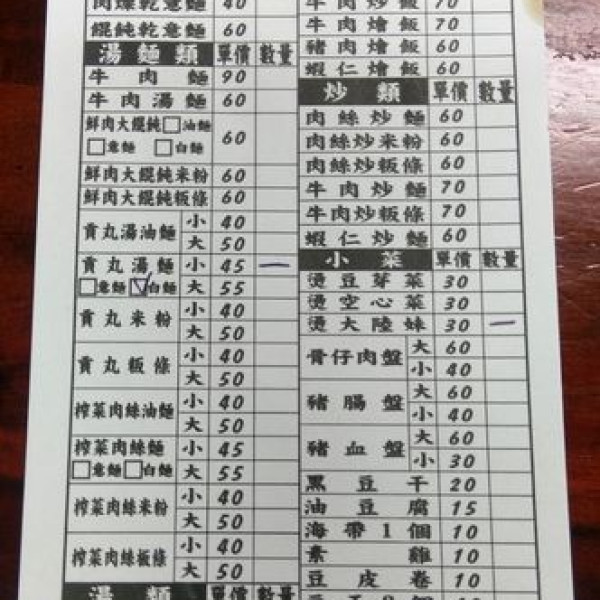 肉燥乾意麵 40
餛飩乾意麵 60
湯麵類 單價 數量
牛肉麵 90
牛肉湯麵 60
鮮肉大餛飩□油麵
□意麵 □白麵 60
鮮肉大餛飩米粉 60
鮮肉大餛飩粄條 60
貢丸湯油麵 小 40
大 50
貢丸湯麵 小 45 一
□意麵 ☑白麵 大 55
貢丸米粉 小 40
大 50
貢丸粄條 小 40
大 50
榨菜肉絲油麵 小 40
大 50
榨菜肉絲麵 小 45
□意麵 □白麵 大 55
榨菜肉絲米粉 小 40
大 50
榨菜肉絲粄條 小 40
大 50
湯類 單價 數量
牛肉炒飯 70
牛肉燴飯 70
豬肉燴飯 60
蝦仁燴飯 60
炒類 單價 數量
肉絲炒麵 60
肉絲炒米粉 60
肉絲炒粄條 60
牛肉炒麵 70
牛肉炒粄條 70
蝦仁炒麵 60
小菜 單價 數量
燙豆芽菜 30
燙空心菜 30
燙大陸妹 30 一
骨仔肉盤 大 60
小 40
豬腸盤 大 60
小 40
豬血盤 大 60
小 30
黑豆干 20
油豆腐 15
海帶1個 10
素雞 10
豆皮卷 10
10